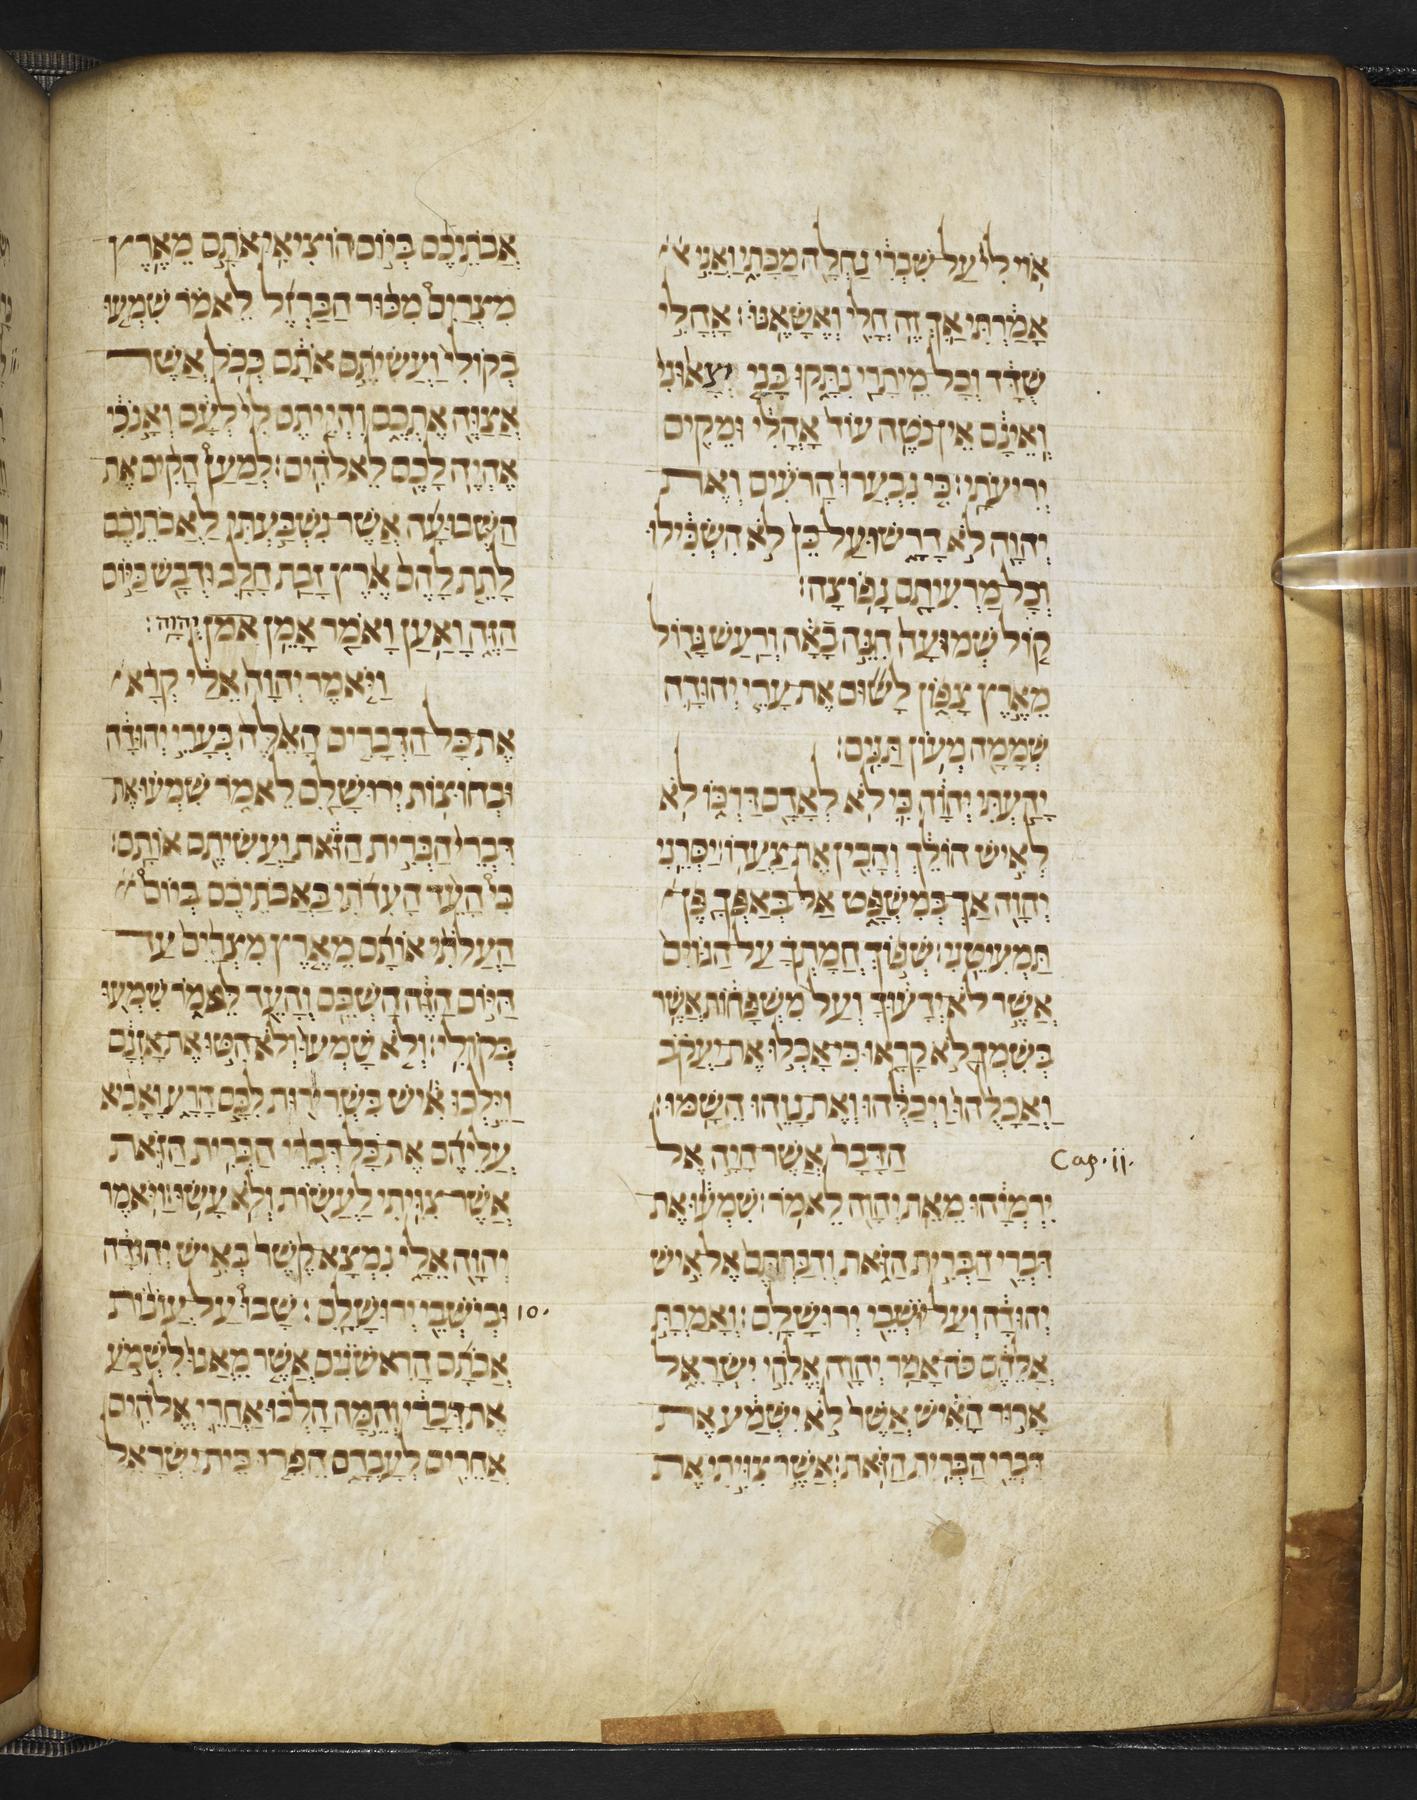 אוֹי לִי עַל שִׁבְרִי נַחְלָה מַכָּתִי וַאֲנִי א
אָמַרְתִּי אַךְ זֶה חֳלִי וְאֶשָּׂאֶנּוּ׃ אָהֳלִי
שֻׁדָּד וְכָל מֵיתָרַי נִתָּקוּ בָּנַי יְצָאוּנִי
וְאֵינָם אֵין נֹטֶה עוֹד אָהֳלִי וּמֵקִים
יְרִיעֹתָי׃ כִּי נִבְעֲרוּ הָרֹעִים וְאֶת
יְהוָה לֹא דָרָשׁוּ עַל כֵּן לֹא הִשְׂכִּילוּ
וְכָל מַרְעִיתָם נָפוֹצָה׃
קוֹל שְׁמוּעָה הִנֵּה בָאָה וְרַעַשׁ גָּדוֹל
מֵאֶרֶץ צָפוֹן לָשׂוּם אֶת עָרֵי יְהוּדָה
שְׁמָמָה מְעוֹן תַּנִּים׃
יָדַעְתִּי יְהוָה כִּי לֹא לָאָדָם דַּרְכּוֹ לֹא
לְאִישׁ הוֹלֵךְ וְהָכִין אֶת צַעֲדוֹ׃ יַסְּרֵנִי
יְהוָה אַךְ בְּמִשְׁפָּט אַל בְּאַפְּךָ פֶּן
תַּמְעִיטֵנִי׃ שְׁפוֹךְ חֲמָתְךָ עַל הַגּוֹיִם
אֲשֶׁר לֹא יְדָעוּךָ וְעַל מִשְׁפָּחוֹת אֲשֶׁר
בְּשִׁמְךָ לֹא קָרָאוּ כִּי אָכְלוּ אֶת יַעֲקֹב
וַאֲכָלֻהוּ וַיְכַלֻּהוּ וְאֶת נָוֵהוּ הֵשַׁמּוּ׃
הַדָּבָר אֲשֶׁר הָיָה אֶל
Cap. ii.
יִרְמְיָהוּ מֵאֵת יְהוָה לֵאמֹר׃ שִׁמְעוּ אֶת
דִּבְרֵי הַבְּרִית הַזֹּאת וְדִבַּרְתָּם אֶל אִישׁ
יְהוּדָה וְעַל יֹשְׁבֵי יְרוּשָׁלִָם׃ וְאָמַרְתָּ
אֲלֵהֶם כֹּה אָמַר יְהוָה אֱלֹהֵי יִשְׂרָאֵל
אָרוּר הָאִישׁ אֲשֶׁר לֹא יִשְׁמַע אֶת
דִּבְרֵי הַבְּרִית הַזֹּאת׃ אֲשֶׁר צִוִּיתִי אֶת
אֲבֹתֵיכֶם בְּיוֹם הוֹצִיאִי אֹתָם מֵאֶרֶץ
מִצְרַיִם מִכּוּר הַבַּרְזֶל לֵאמֹר שִׁמְעוּ
בְקוֹלִי וַעֲשִׂיתֶם אֹתָם כְּכֹל אֲשֶׁר
אֲצַוֶּה אֶתְכֶם וִהְיִיתֶם לִי לְעָם וְאָנֹכִי
אֶהְיֶה לָכֶם לֵאלֹהִים׃ לְמַעַן הָקִים אֶת
הַשְּׁבוּעָה אֲשֶׁר נִשְׁבַּעְתִּי לַאֲבֹתֵיכֶם
לָתֵת לָהֶם אֶרֶץ זָבַת חָלָב וּדְבַשׁ כַּיּוֹם
הַזֶּה וָאַעַן וָאֹמַר אָמֵן אמן יְהוָה׃
וַיֹּאמֶר יְהוָה אֵלַי קְרָא
אֶת כָּל הַדְּבָרִים הָאֵלֶּה בְּעָרֵי יְהוּדָה
וּבְחוּצוֹת יְרוּשָׁלִַם לֵאמֹר שִׁמְעוּ אֶת
דִּבְרֵי הַבְּרִית הַזֹּאת וַעֲשִׂיתֶם אוֹתָם׃
כִּי הָעֵד הַעִדֹתִי בַּאֲבֹתֵיכֶם בְּיוֹם
הַעֲלֹתִי אוֹתָם מֵאֶרֶץ מִצְרַיִם עַד
הַיּוֹם הַזֶּה הַשְׁכֵּם וְהָעֵד לֵאמֹר שִׁמְעוּ
בְּקוֹלִי׃ וְלֹא שָׁמְעוּ וְלֹא הִטּוּ אֶת אָזְנָם
וַיֵּלְכוּ אִישׁ בִּשְׁרִירוּת לִבָּם הָרָע וָאָבִיא
עֲלֵיהֶם אֶת כָּל דִּבְרֵי הַבְּרִית הַזֹּאת
אֲשֶׁר צִוִּיתִי לַעֲשׂוֹת וְלֹא עָשׂוּ׃ וַיֹּאמֶר
יְהוָה אֵלָי נִמְצָא קֶשֶׁר בְּאִישׁ יְהוּדָה
10. וּבְיֹשְׁבֵי יְרוּשָׁלִָם׃ שָׁבוּ עַל עֲוֹנוֹת
אֲבֹתָם הָרִאשֹׁנִים אֲשֶׁר מֵאֲנוּ לִשְׁמֹעַ
אֶת דְּבָרַי וְהֵמָּה הָלְכוּ אַחֲרֵי אֱלֹהִים
אֲחֵרִים לְעָבְדָם הֵפֵרוּ בֵית יִשְׂרָאֵל